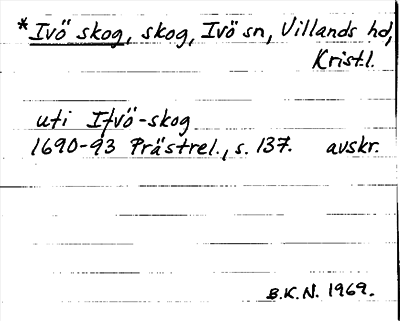 *Ivö skog, skog, Ivö sn, Villands hd,
Kristl.
uti Ifvö-skog
1690-93 Prästrel., s. 137. avskr.
B.K.N. 1969.